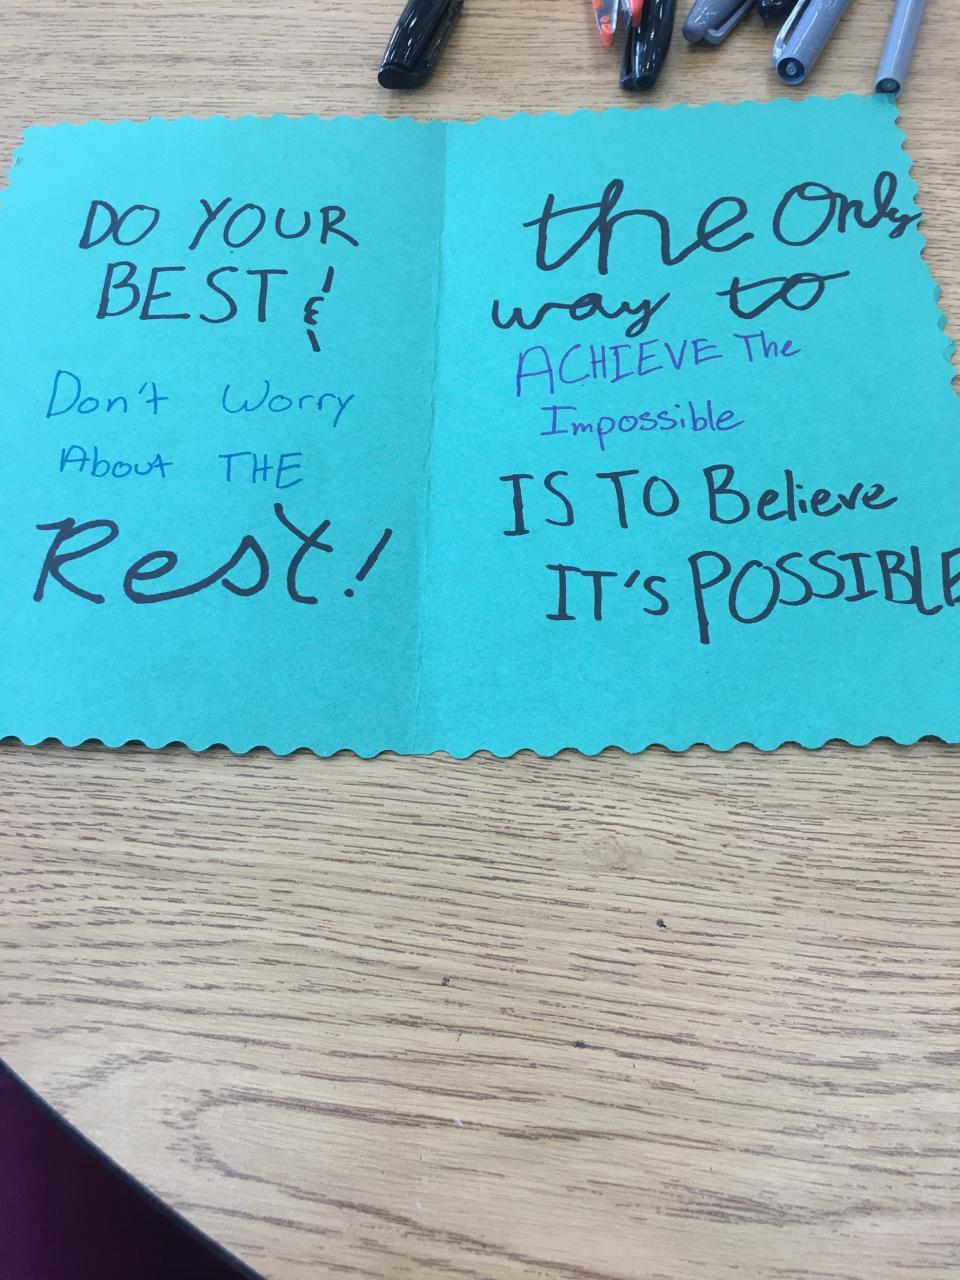 DO YOUR
BEST &
Don't Worry
About THE
Rest!
the Only
way to
ACHIEVE The
Impossible
IS TO Believe
IT's POSSIBLE